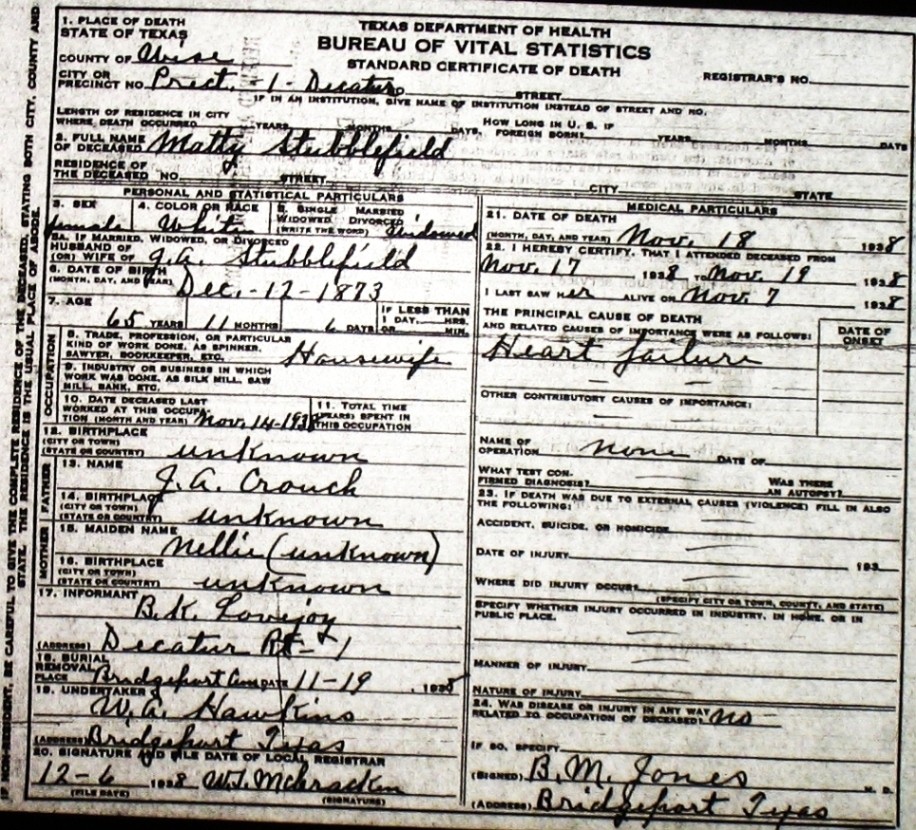 TEXAS DEPARTMENT OF HEALTH
BUREAU OF VITAL STATISTICS
STANDARD CERTIFICATE OF DEATH
1. PLACE OF DEATH
STATE OF TEXAS
COUNTY OF Wise
REGISTRAR'S NO.
CITY OR
PRECINCT NO. Prect. -1- Decatur STREET
IF IN AN INSTITUTION, GIVE NAME OF INSTITUTION INSTEAD OF STREET AND NO.
LENGTH OF RESIDENCE IN CITY
WHERE DEATH OCCURRED YEARS MONTHS DAYS HOW LONG IN U. S. IF FOREIGN BORN? YEARS MONTHS DAYS
2. FULL NAME
OF DECEASED Matty Stubblefield
RESIDENCE OF
THE DECEASED NO. STREET CITY STATE
PERSONAL AND STATISTICAL PARTICULARS
3. SEX 4. COLOR OR RACE 5. SINGLE MARRIED
WIDOWED DIVORCED
(WRITE THE WORD)
female White Widowed
5A. IF MARRIED, WIDOWED, OR DIVORCED
HUSBAND OF
(OR) WIFE OF G.A. Stubblefield
6. DATE OF BIRTH
(MONTH, DAY, AND YEAR) Dec.-12-1873
7. AGE
65 YEARS 11 MONTHS 6 DAYS IF LESS THAN
1 DAY, HRS.
OR MIN.
OCCUPATION
8. TRADE, PROFESSION, OR PARTICULAR
KIND OF WORK DONE, AS SPINNER,
SAWYER, BOOKKEEPER, ETC. Housewife
9. INDUSTRY OR BUSINESS IN WHICH
WORK WAS DONE, AS SILK MILL, SAW
MILL, BANK, ETC.
10. DATE DECEASED LAST
WORKED AT THIS OCCUPA-
TION (MONTH AND YEAR) Nov. 14-1938
11. TOTAL TIME
(YEARS) SPENT IN
THIS OCCUPATION
12. BIRTHPLACE
(CITY OR TOWN)
(STATE OR COUNTRY) unknown
FATHER
13. NAME
J.A. Crouch
14. BIRTHPLACE
(CITY OR TOWN)
(STATE OR COUNTRY) unknown
MOTHER
15. MAIDEN NAME
Nellie (unknown)
16. BIRTHPLACE
(CITY OR TOWN)
(STATE OR COUNTRY) unknown
17. INFORMANT
B.K. Lovejoy
(ADDRESS) Decatur Rt-1
18. BURIAL
REMOVAL
PLACE Bridgeport Cem DATE 11-19, 1938
19. UNDERTAKER
W.A. Hawkins
(ADDRESS) Bridgeport Texas
20. SIGNATURE AND FILE DATE OF LOCAL REGISTRAR
12-6 1938 W.T. McCracken
(FILE DATE) (SIGNATURE)
MEDICAL PARTICULARS
21. DATE OF DEATH
(MONTH, DAY, AND YEAR) Nov. 18 1938
22. I HEREBY CERTIFY, THAT I ATTENDED DECEASED FROM
Nov. 17 1938 TO Nov. 19 1938
I LAST SAW Her ALIVE ON Nov 7 1938
THE PRINCIPAL CAUSE OF DEATH
AND RELATED CAUSES OF IMPORTANCE WERE AS FOLLOWS: DATE OF
ONSET
Heart failure
OTHER CONTRIBUTORY CAUSES OF IMPORTANCE:
NAME OF
OPERATION none DATE OF
WHAT TEST CON-
FIRMED DIAGNOSIS? WAS THERE
AN AUTOPSY?
23. IF DEATH WAS DUE TO EXTERNAL CAUSES (VIOLENCE) FILL IN ALSO
THE FOLLOWING:
ACCIDENT, SUICIDE, OR HOMICIDE
DATE OF INJURY 193
WHERE DID INJURY OCCUR?
(SPECIFY CITY OR TOWN, COUNTY, AND STATE)
SPECIFY WHETHER INJURY OCCURRED IN INDUSTRY, IN HOME, OR IN
PUBLIC PLACE.
MANNER OF INJURY
NATURE OF INJURY
24. WAS DISEASE OR INJURY IN ANY WAY
RELATED TO OCCUPATION OF DECEASED? no
IF SO, SPECIFY
(SIGNED) B.M. Jones M. D.
(ADDRESS) Bridgeport Texas
BE CAREFUL TO GIVE THE COMPLETE RESIDENCE OF THE DECEASED, STATING BOTH CITY, COUNTY AND
STATE. THE RESIDENCE IS THE USUAL PLACE OF ABODE.